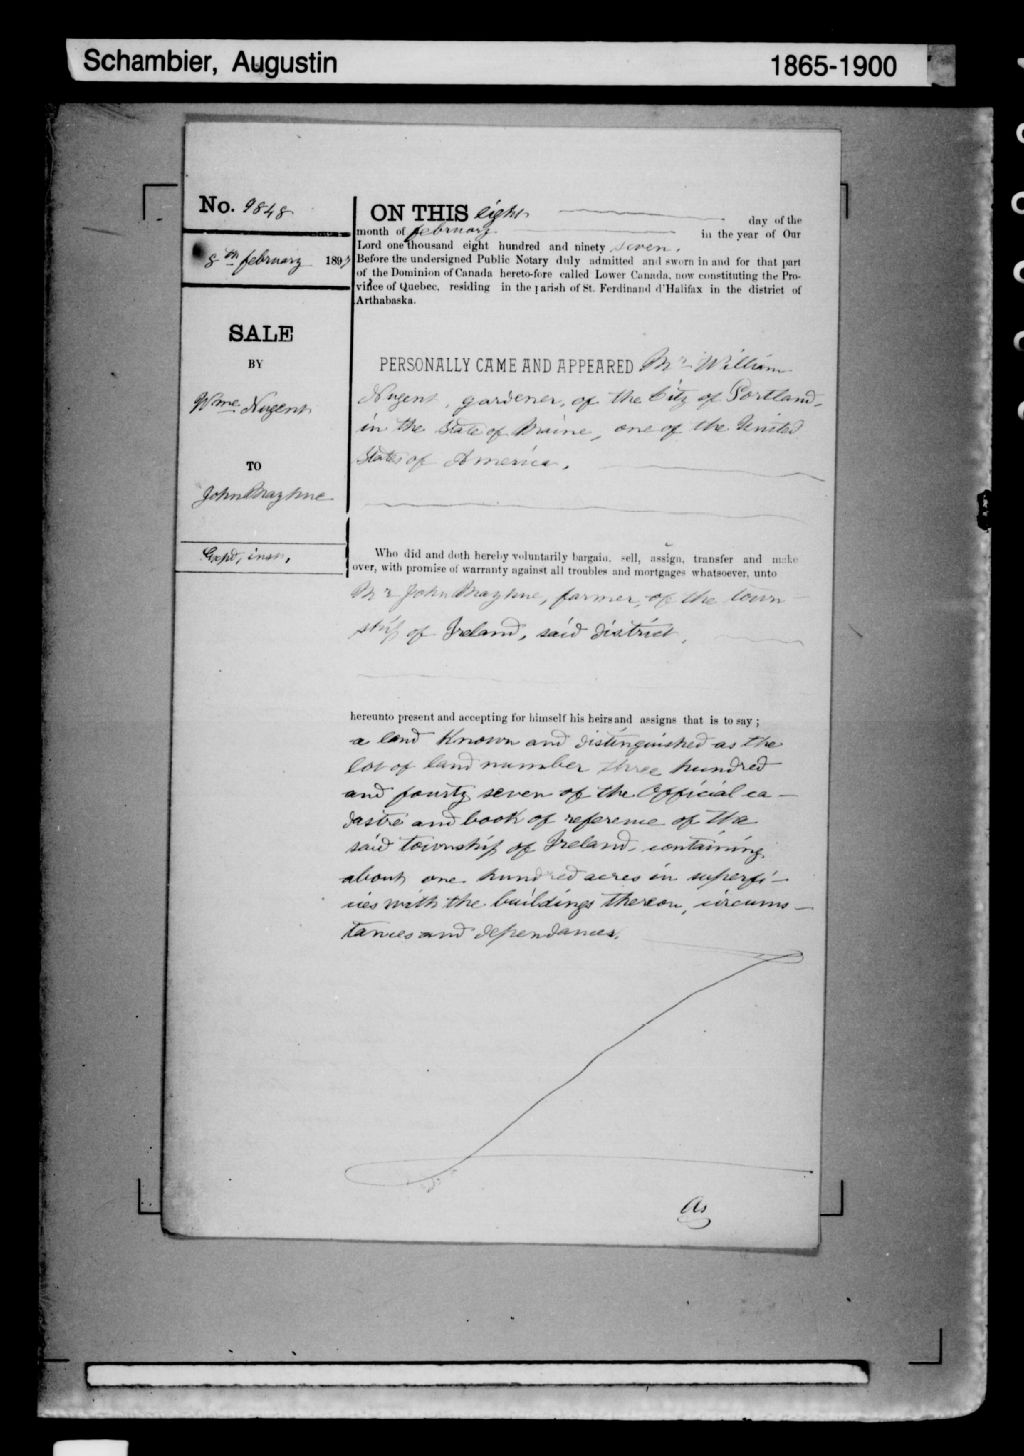 Schambier, Augustin
1865-1900
No. 9848
8th february 1897
SALE
BY
Wme Nugent
TO
John
Expd, inst.
ON THIS eight day of the
month of february in the year of Our
Lord one thousand eight hundred and ninety seven.
Before the undersigned Public Notary duly admitted and sworn in and for that part
of the Dominion of Canada hereto-fore called Lower Canada, now constituting the Pro-
vince of Quebec, residing in the parish of St. Ferdinand d'Halifax in the district of
Arthabaska.
PERSONALLY CAME AND APPEARED Mr William
Nugent, gardener, of the City of Portland,
in the State of Maine, one of the United
States of America.
Who did and doth hereby voluntarily bargain, sell, assign, transfer and make
over, with promise of warranty against all troubles and mortgages whatsoever, unto
Mr John farmer, of the town-
ship of Ireland, said district.
hereunto present and accepting for himself his heirs and assigns that is to say ;
a land known and distinguished as the
lot of land number three hundred
and fourty seven of the Official ca-
dastre and book of reference of the
said township of Ireland, containing
about one hundred acres in superfi-
cies with the buildings thereon, circums-
tances and dependances.
As